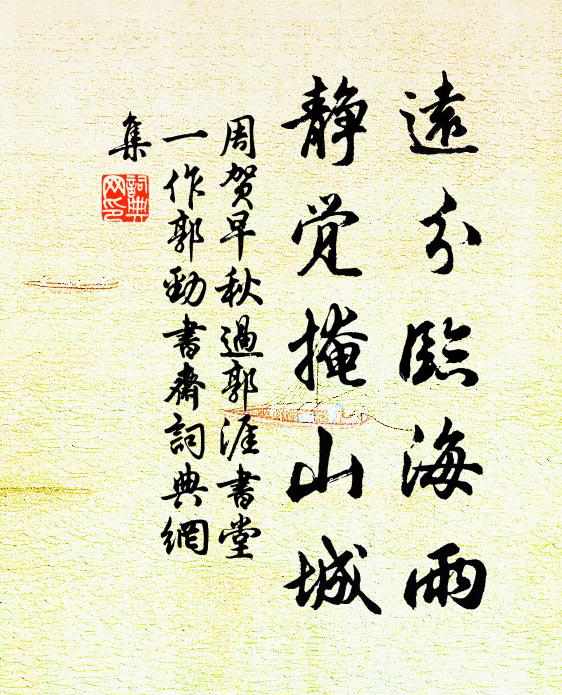 遠分臨海雨
静觉掩山城
周贺早秋過郭涯書堂
一作郭勁書齋詞典網
集
詞典
网印